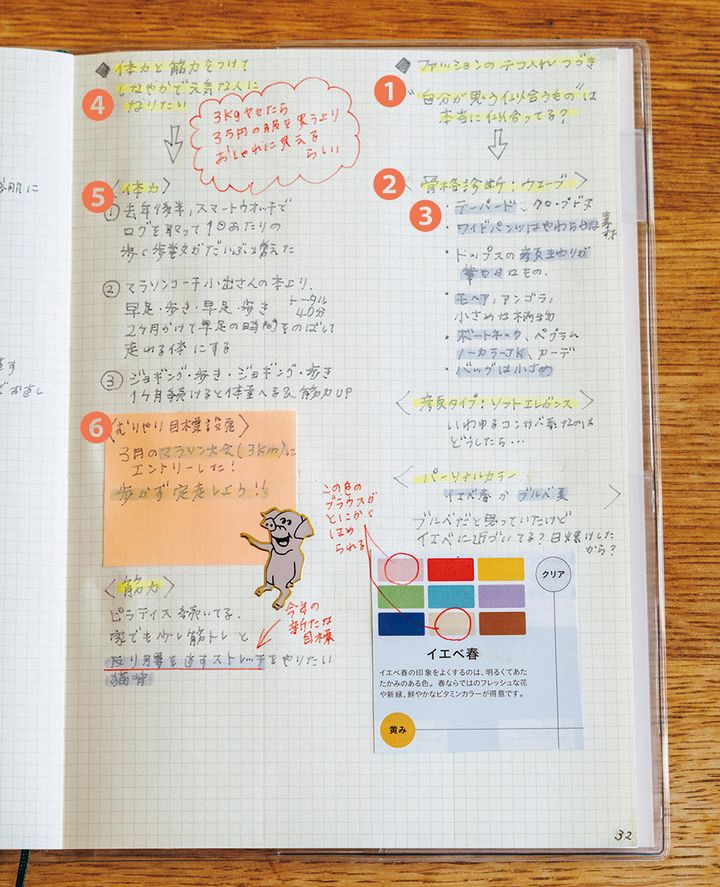 肌に
す
お直し
④
◆体力と筋力をつけて
しなやかで元気な人に
なりたい
3kgヤセたら
3万円の服を買うより
おしゃれに見える
らしい
⑤
〈体力〉
①去年後半、スマートウォッチで
ログを取って1日あたりの
歩く歩数がだいぶ増えた
②マラソンコーチ小出さんの本より.
早足・歩き・早足・歩き トータル40分
2ヶ月かけて早足の時間をのばして
走れる体にする
③ジョギング・歩き・ジョギング・歩き
1ヶ月続けると体重へる&筋力UP
⑥
〈むりやり目標設定〉
3月のマラソン大会(3km)に
エントリーした!
歩かず完走しよう!!
〈筋力〉
ピラティス続いてる.
家でも少し筋トレと
反り腰を直すストレッチをやりたい
猫背
今年の
新たな
目標
①
◆ファッションのテコ入れ つづき
"自分が思う似合うもの"は
本当に似合ってる?
②
〈骨格診断:ウェーブ〉
③
・テーパード、クロップド丈
・ワイドパンツはやわらかな素材
・トップスの顔まわりが
華やかなもの.
・モヘア、アンゴラ、
小さめな柄物
・ボートネック、ペプラム
ノーカラーJK、カーデ
・バッグは小さめ
〈顔タイプ:ソフトエレガンス〉
いわゆるコンサバ系なのは
どうしたら…
〈パーソナルカラー
イエベ春かブルベ夏〉
ブルベだと思っていたけど
イエベに近づいてる?日焼けした
から?
この色の
ブラウスが
とにかく
ほめ
られる
クリア
イエベ春
イエベ春の印象をよくするのは、明るくてあた
たかみのある色。春ならではのフレッシュな花
や新緑、鮮やかなビタミンカラーが得意です。
黄み
32